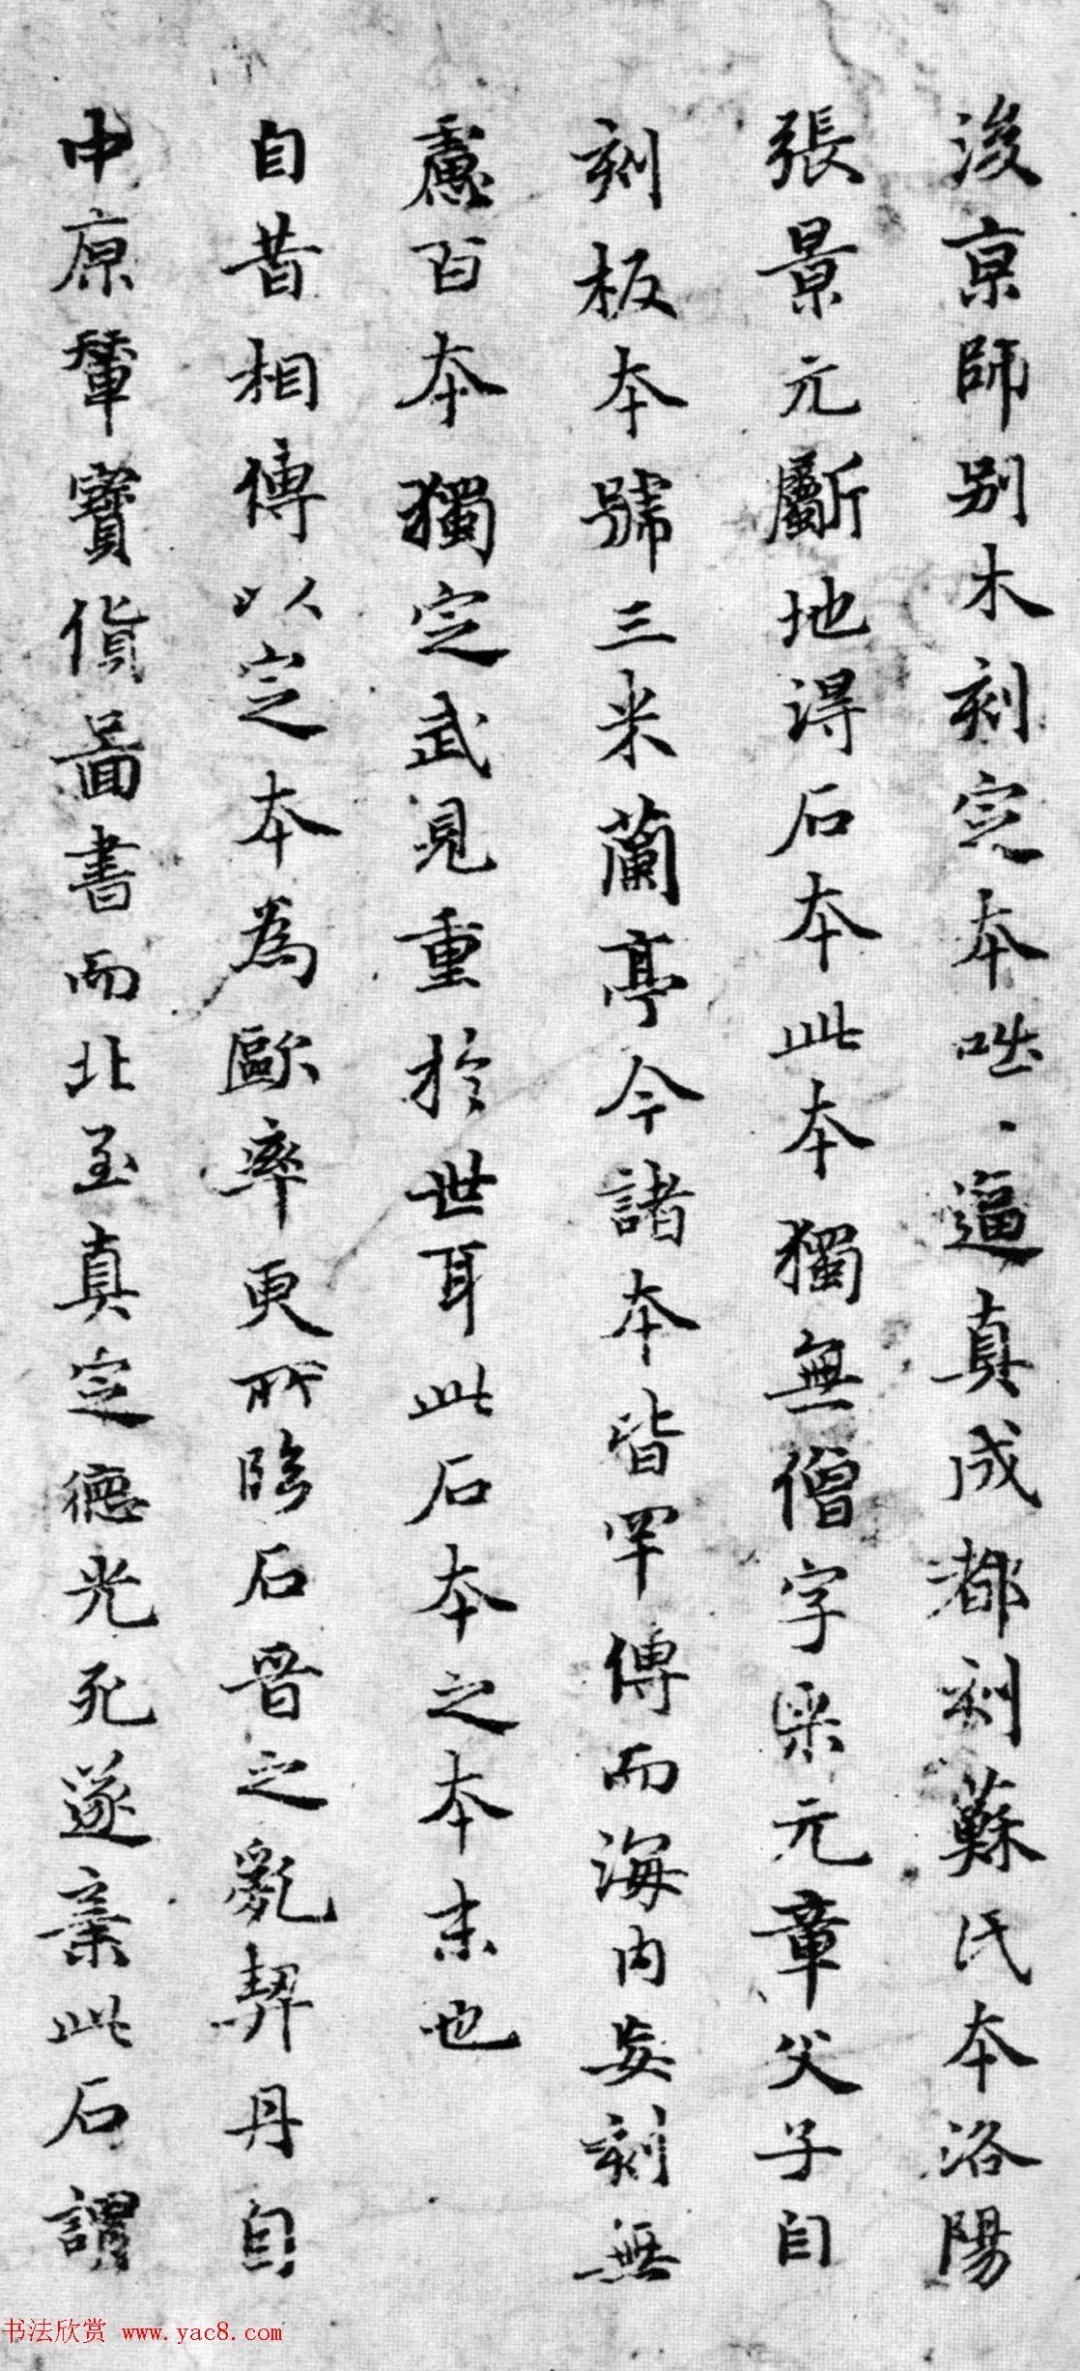 後京師別木刻定本咄、逼真成都刻蘇氏本洛陽
張景元斸地得石本此本獨無僧字米元章父子自
刻板本號三米蘭亭今諸本皆罕傳而海内妄刻無
慮百本獨定武見重於世耳此石本之本末也
自昔相傳以定本為歐率更所臨石晉之亂契丹自
中原輦寶貨圖書而北至真定德光死遂棄此石謂
书法欣赏 www.yac8.com